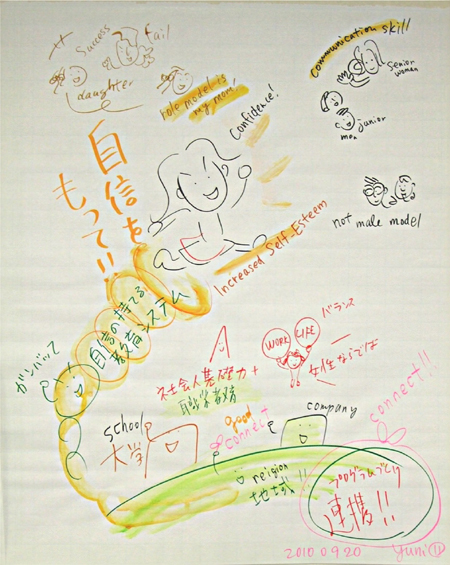 Success
fail
daughter
role model is
my mom!
Confidence!
communication skill
senior
woman
junior
men
not male model
自信を
もって!!
Increased Self-Esteem
ガンバッて
自信の持てる
教育システム
バランス
WORK
LIFE
女性ならでは
社会人基礎力+
職業教育
school
大学
good
connect
company
connect!!
religion
地域!!
プログラムづくり
連携!!
2010 09 20
Yuni